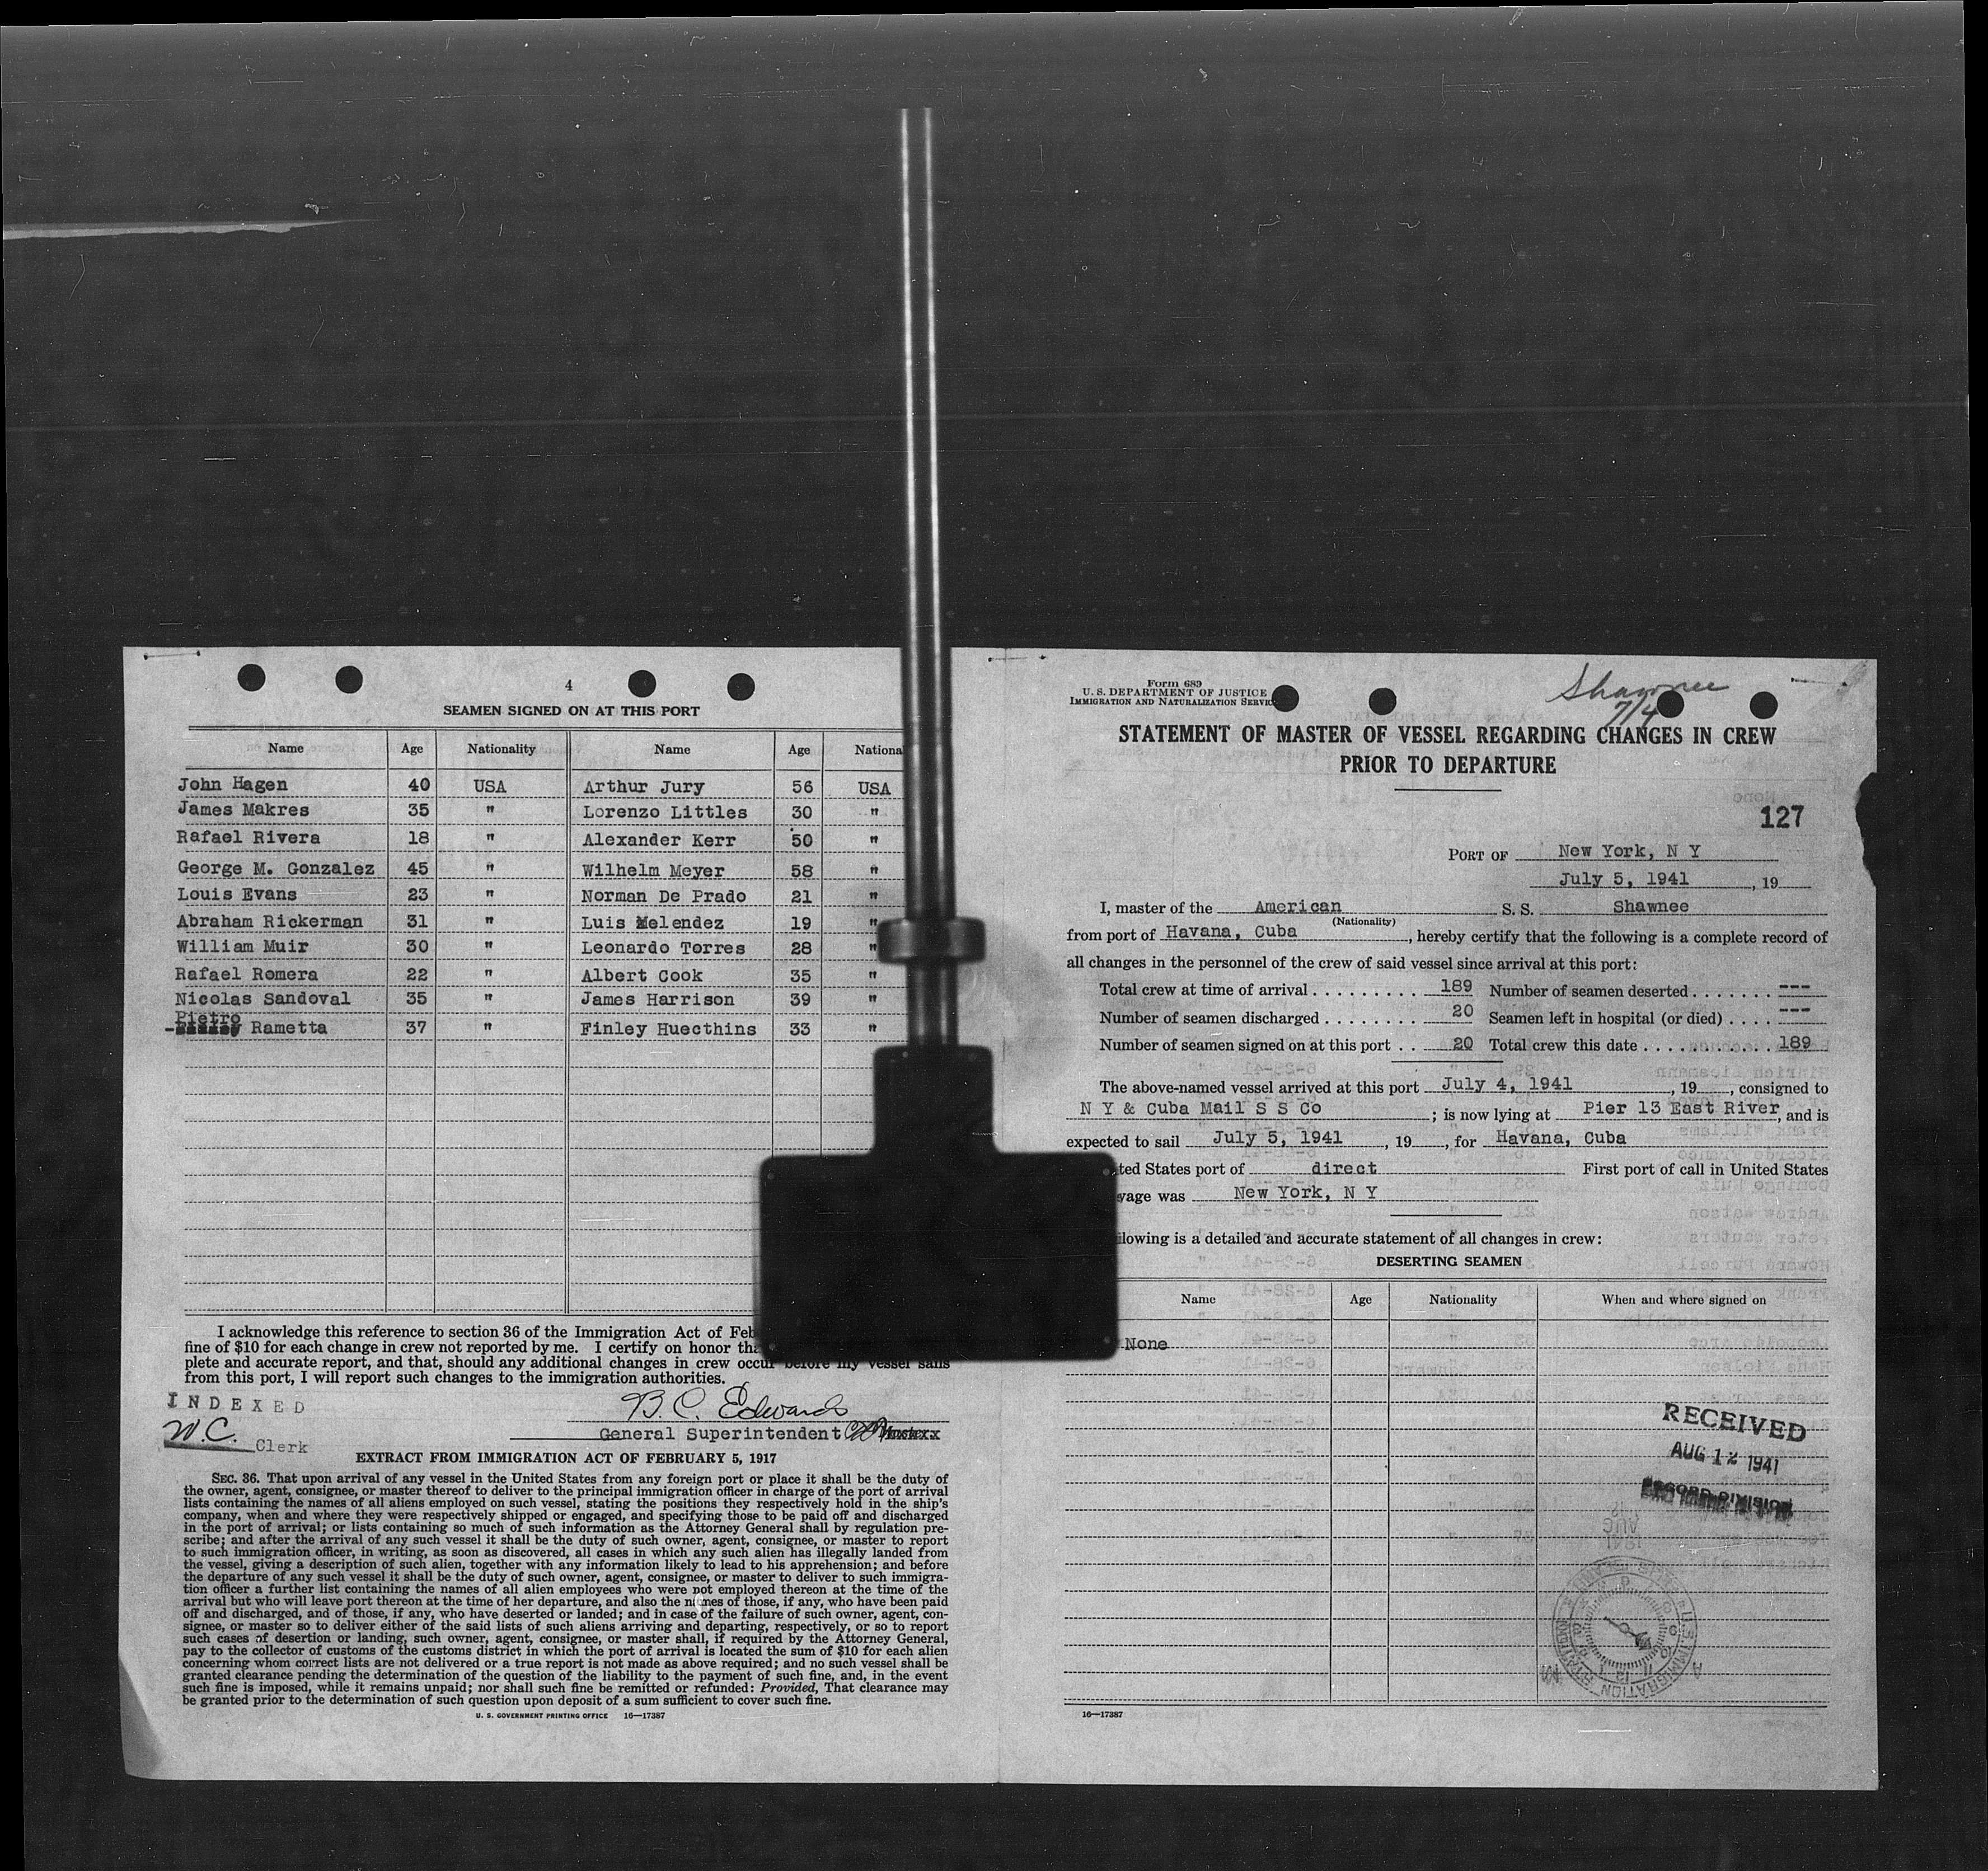 4
SEAMEN SIGNED ON AT THIS PORT
Name Age Nationality Name Age Nationa
John Hagen 40 USA Arthur Jury 56 USA
James Makres 35 " Lorenzo Littles 30 "
Rafael Rivera 18 " Alexander Kerr 50 "
George M. Gonzalez 45 " Wilhelm Meyer 58 "
Louis Evans 23 " Norman De Prado 21 "
Abraham Rickerman 31 " Luis Melendez 19 "
William Muir 30 " Leonardo Torres 28 "
Rafael Romera 22 " Albert Cook 35 "
Nicolas Sandoval 35 " James Harrison 39 "
Pietro
Rametta 37 " Finley Huecthins 33 "
I acknowledge this reference to section 36 of the Immigration Act of Feb
fine of $10 for each change in crew not reported by me. I certify on honor tha
plete and accurate report, and that, should any additional changes in crew occur before my vessel sails
from this port, I will report such changes to the immigration authorities.
INDEXED
W.C. Clerk
B. C. Edwards
General Superintendent
EXTRACT FROM IMMIGRATION ACT OF FEBRUARY 5, 1917
SEC. 36. That upon arrival of any vessel in the United States from any foreign port or place it shall be the duty of
the owner, agent, consignee, or master thereof to deliver to the principal immigration officer in charge of the port of arrival
lists containing the names of all aliens employed on such vessel, stating the positions they respectively hold in the ship's
company, when and where they were respectively shipped or engaged, and specifying those to be paid off and discharged
in the port of arrival; or lists containing so much of such information as the Attorney General shall by regulation pre-
scribe; and after the arrival of any such vessel it shall be the duty of such owner, agent, consignee, or master to report
to such immigration officer, in writing, as soon as discovered, all cases in which any such alien has illegally landed from
the vessel, giving a description of such alien, together with any information likely to lead to his apprehension; and before
the departure of any such vessel it shall be the duty of such owner, agent, consignee, or master to deliver to such immigra-
tion officer a further list containing the names of all alien employees who were not employed thereon at the time of the
arrival but who will leave port thereon at the time of her departure, and also the names of those, if any, who have been paid
off and discharged, and of those, if any, who have deserted or landed; and in case of the failure of such owner, agent, con-
signee, or master so to deliver either of the said lists of such aliens arriving and departing, respectively, or so to report
such cases of desertion or landing, such owner, agent, consignee, or master shall, if required by the Attorney General,
pay to the collector of customs of the customs district in which the port of arrival is located the sum of $10 for each alien
concerning whom correct lists are not delivered or a true report is not made as above required; and no such vessel shall be
granted clearance pending the determination of the question of the liability to the payment of such fine, and, in the event
such fine is imposed, while it remains unpaid; nor shall such fine be remitted or refunded: Provided, That clearance may
be granted prior to the determination of such question upon deposit of a sum sufficient to cover such fine.
U. S. GOVERNMENT PRINTING OFFICE 16—17387
Form 689
U. S. DEPARTMENT OF JUSTICE
IMMIGRATION AND NATURALIZATION SERVIC
Shawnee
7/4
STATEMENT OF MASTER OF VESSEL REGARDING CHANGES IN CREW
PRIOR TO DEPARTURE
127
PORT OF New York, N Y
July 5, 1941, 19
I, master of the American S. S. Shawnee
(Nationality)
from port of Havana, Cuba, hereby certify that the following is a complete record of
all changes in the personnel of the crew of said vessel since arrival at this port:
Total crew at time of arrival . . . . . . . . . . 189 Number of seamen deserted . . . . . . . ---
Number of seamen discharged . . . . . . . . 20 Seamen left in hospital (or died) . . . . ---
Number of seamen signed on at this port . . 20 Total crew this date . . . . . . . . . . . . 189
The above-named vessel arrived at this port July 4, 1941, 19, consigned to
N Y & Cuba Mail S S Co; is now lying at Pier 13 East River, and is
expected to sail July 5, 1941, 19, for Havana, Cuba
ted States port of direct First port of call in United States
yage was New York, N Y
llowing is a detailed and accurate statement of all changes in crew:
DESERTING SEAMEN
Name Age Nationality When and where signed on
None
RECEIVED
AUG 12 1941
RECORD DIVISION
16—17387